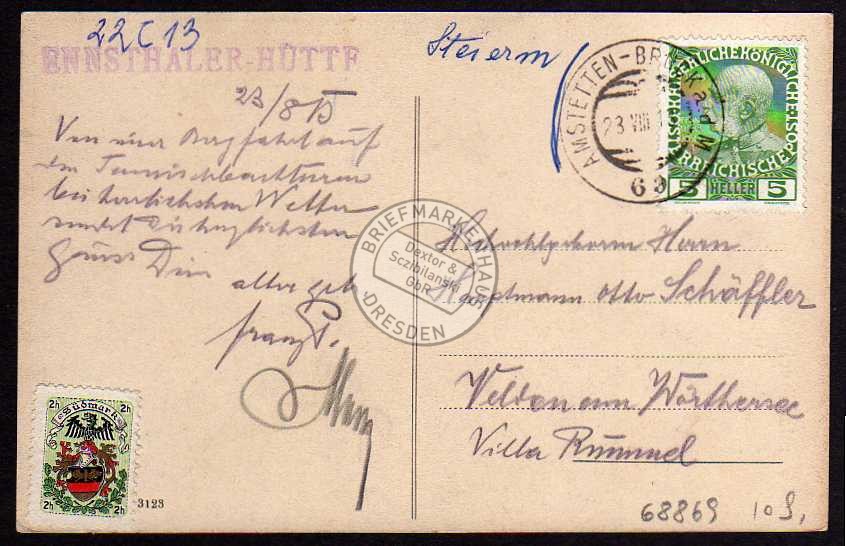 22 C 13
Steierm
ENNSTHALER-HÜTTE
AMSTETTEN-BRUCK a. d. M
23 VIII 1
63
KAISERLICHEKÖNIGLICHE
ÖSTERREICHISCHEPOST
5 HELLER 5
23/8 13
Von einer Bergfahrt auf
den
bei herrlichstem Wetter
sendet die herzlichsten
Grüsse Dein
aller
Franz
Hochwohlgeboren Herrn
Hauptmann Otto Schäffler
Velden am Wörthersee
Villa Rummel
BRIEFMARKENHAUS
Dextor &
Sczibilanski
GbR
DRESDEN
2h Südmark 2h
2h 2h
3123
68869 10 S,